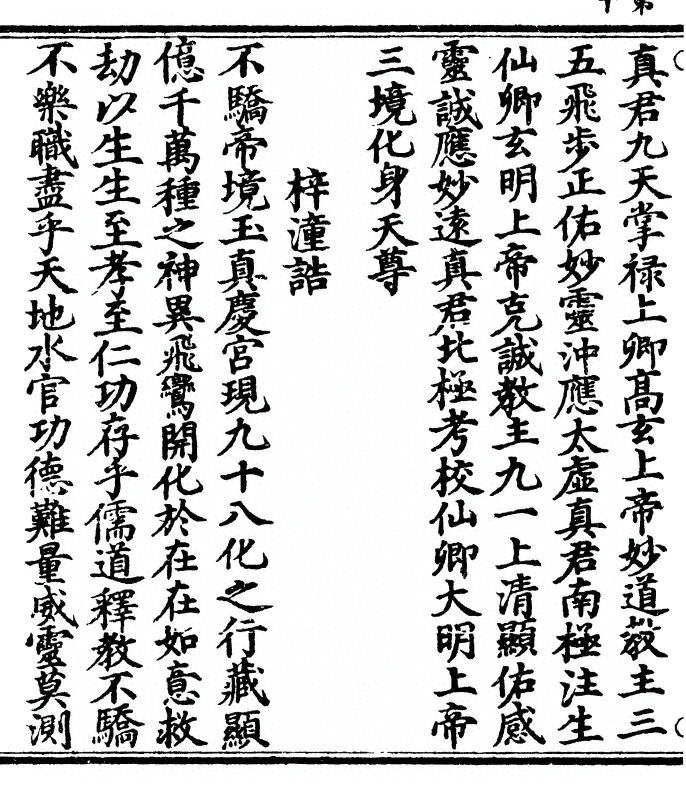 真君九天掌禄上卿高玄上帝妙道教主三
五飛步正佑妙靈沖應太虛真君南極注生
仙卿玄明上帝克誠教主九一上清顯佑感
靈誠應妙遠真君北極考校仙卿大明上帝
三境化身天尊
梓潼誥
不驕帝境玉真慶宮現九十八化之行藏顯
億千萬種之神異飛鸞開化於在在如意救
劫以生生至孝至仁功存乎儒道釋教不驕
不樂職盡乎天地水官功德難量威靈莫測